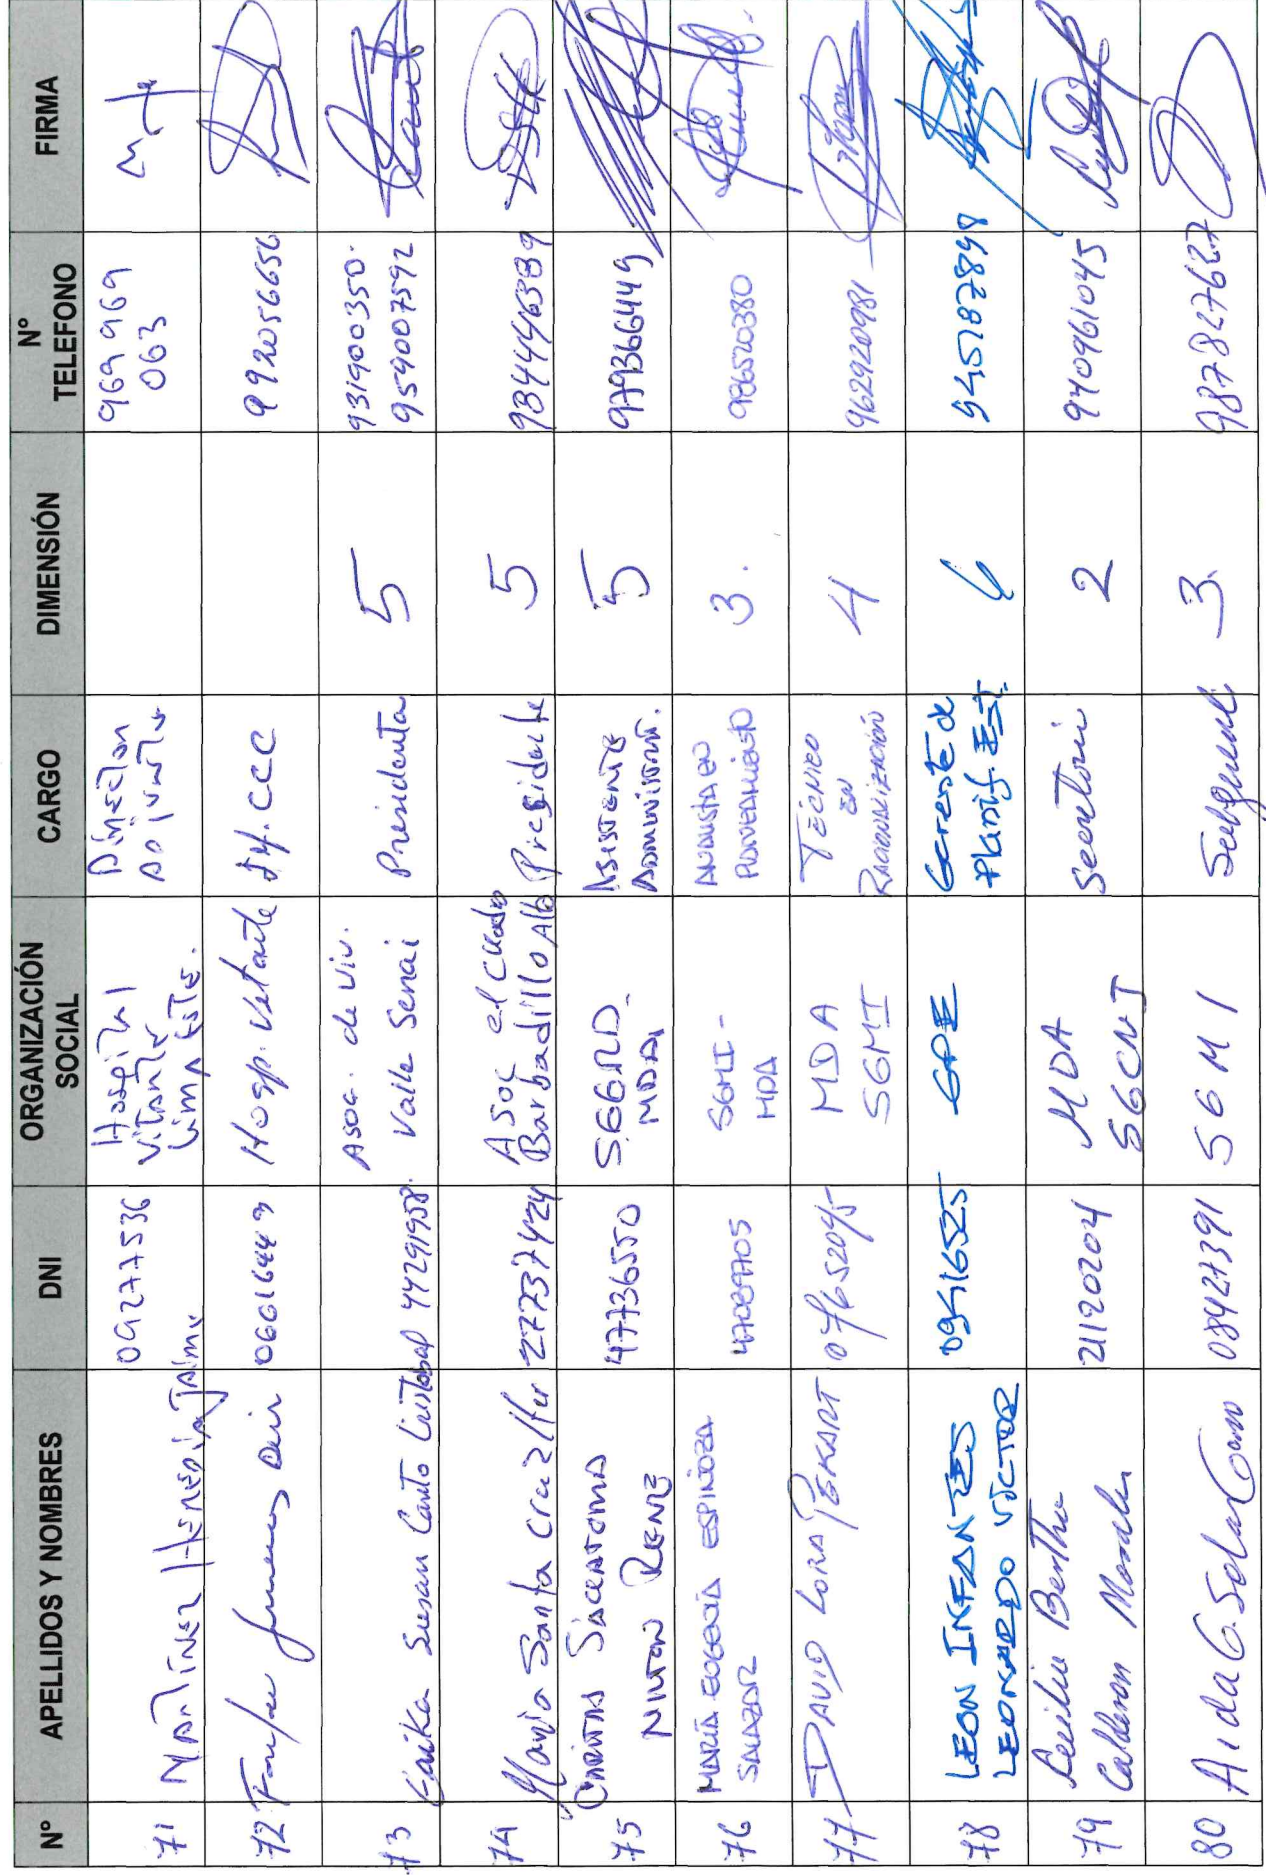 N° APELLIDOS Y NOMBRES DNI ORGANIZACIÓN SOCIAL CARGO DIMENSIÓN N° TELEFONO FIRMA
71 Martínez Heredia Jaime 09277536 Hospital Vitarte Lima Este. Director Adjunto 969 969 063
72 06616449 Hosp. Vitarte CCC 992056656
73 Susan Canto Cristobal 44291958 Asoc. de Viv. Valle Senai Presidenta 5 931900350 959007592
74 María Santa Cruz 27737424 Asoc el Cuado Barbadillo Alto Presidente 5 984446389
75 Nilton Rene 47736550 SGGRD MDA Asistente Administ. 5 979366449
76 María Eugenia Espinoza Salazar 47089705 SGMI - MDA Planeamiento 3. 986520380
77 David Lora Pekart 07652045 MDA SGMI Técnico en Racionalización 4 962920981
78 LEON INFANTES LEONARDO VICTOR 09416525 GPE Gerente de Planif. Est. 6 945187898
79 Bertha Calderon Morales 21120204 MDA Secretaria 2 940961045
80 Aida G. Solar 08427391 SGMI 3. 987827627